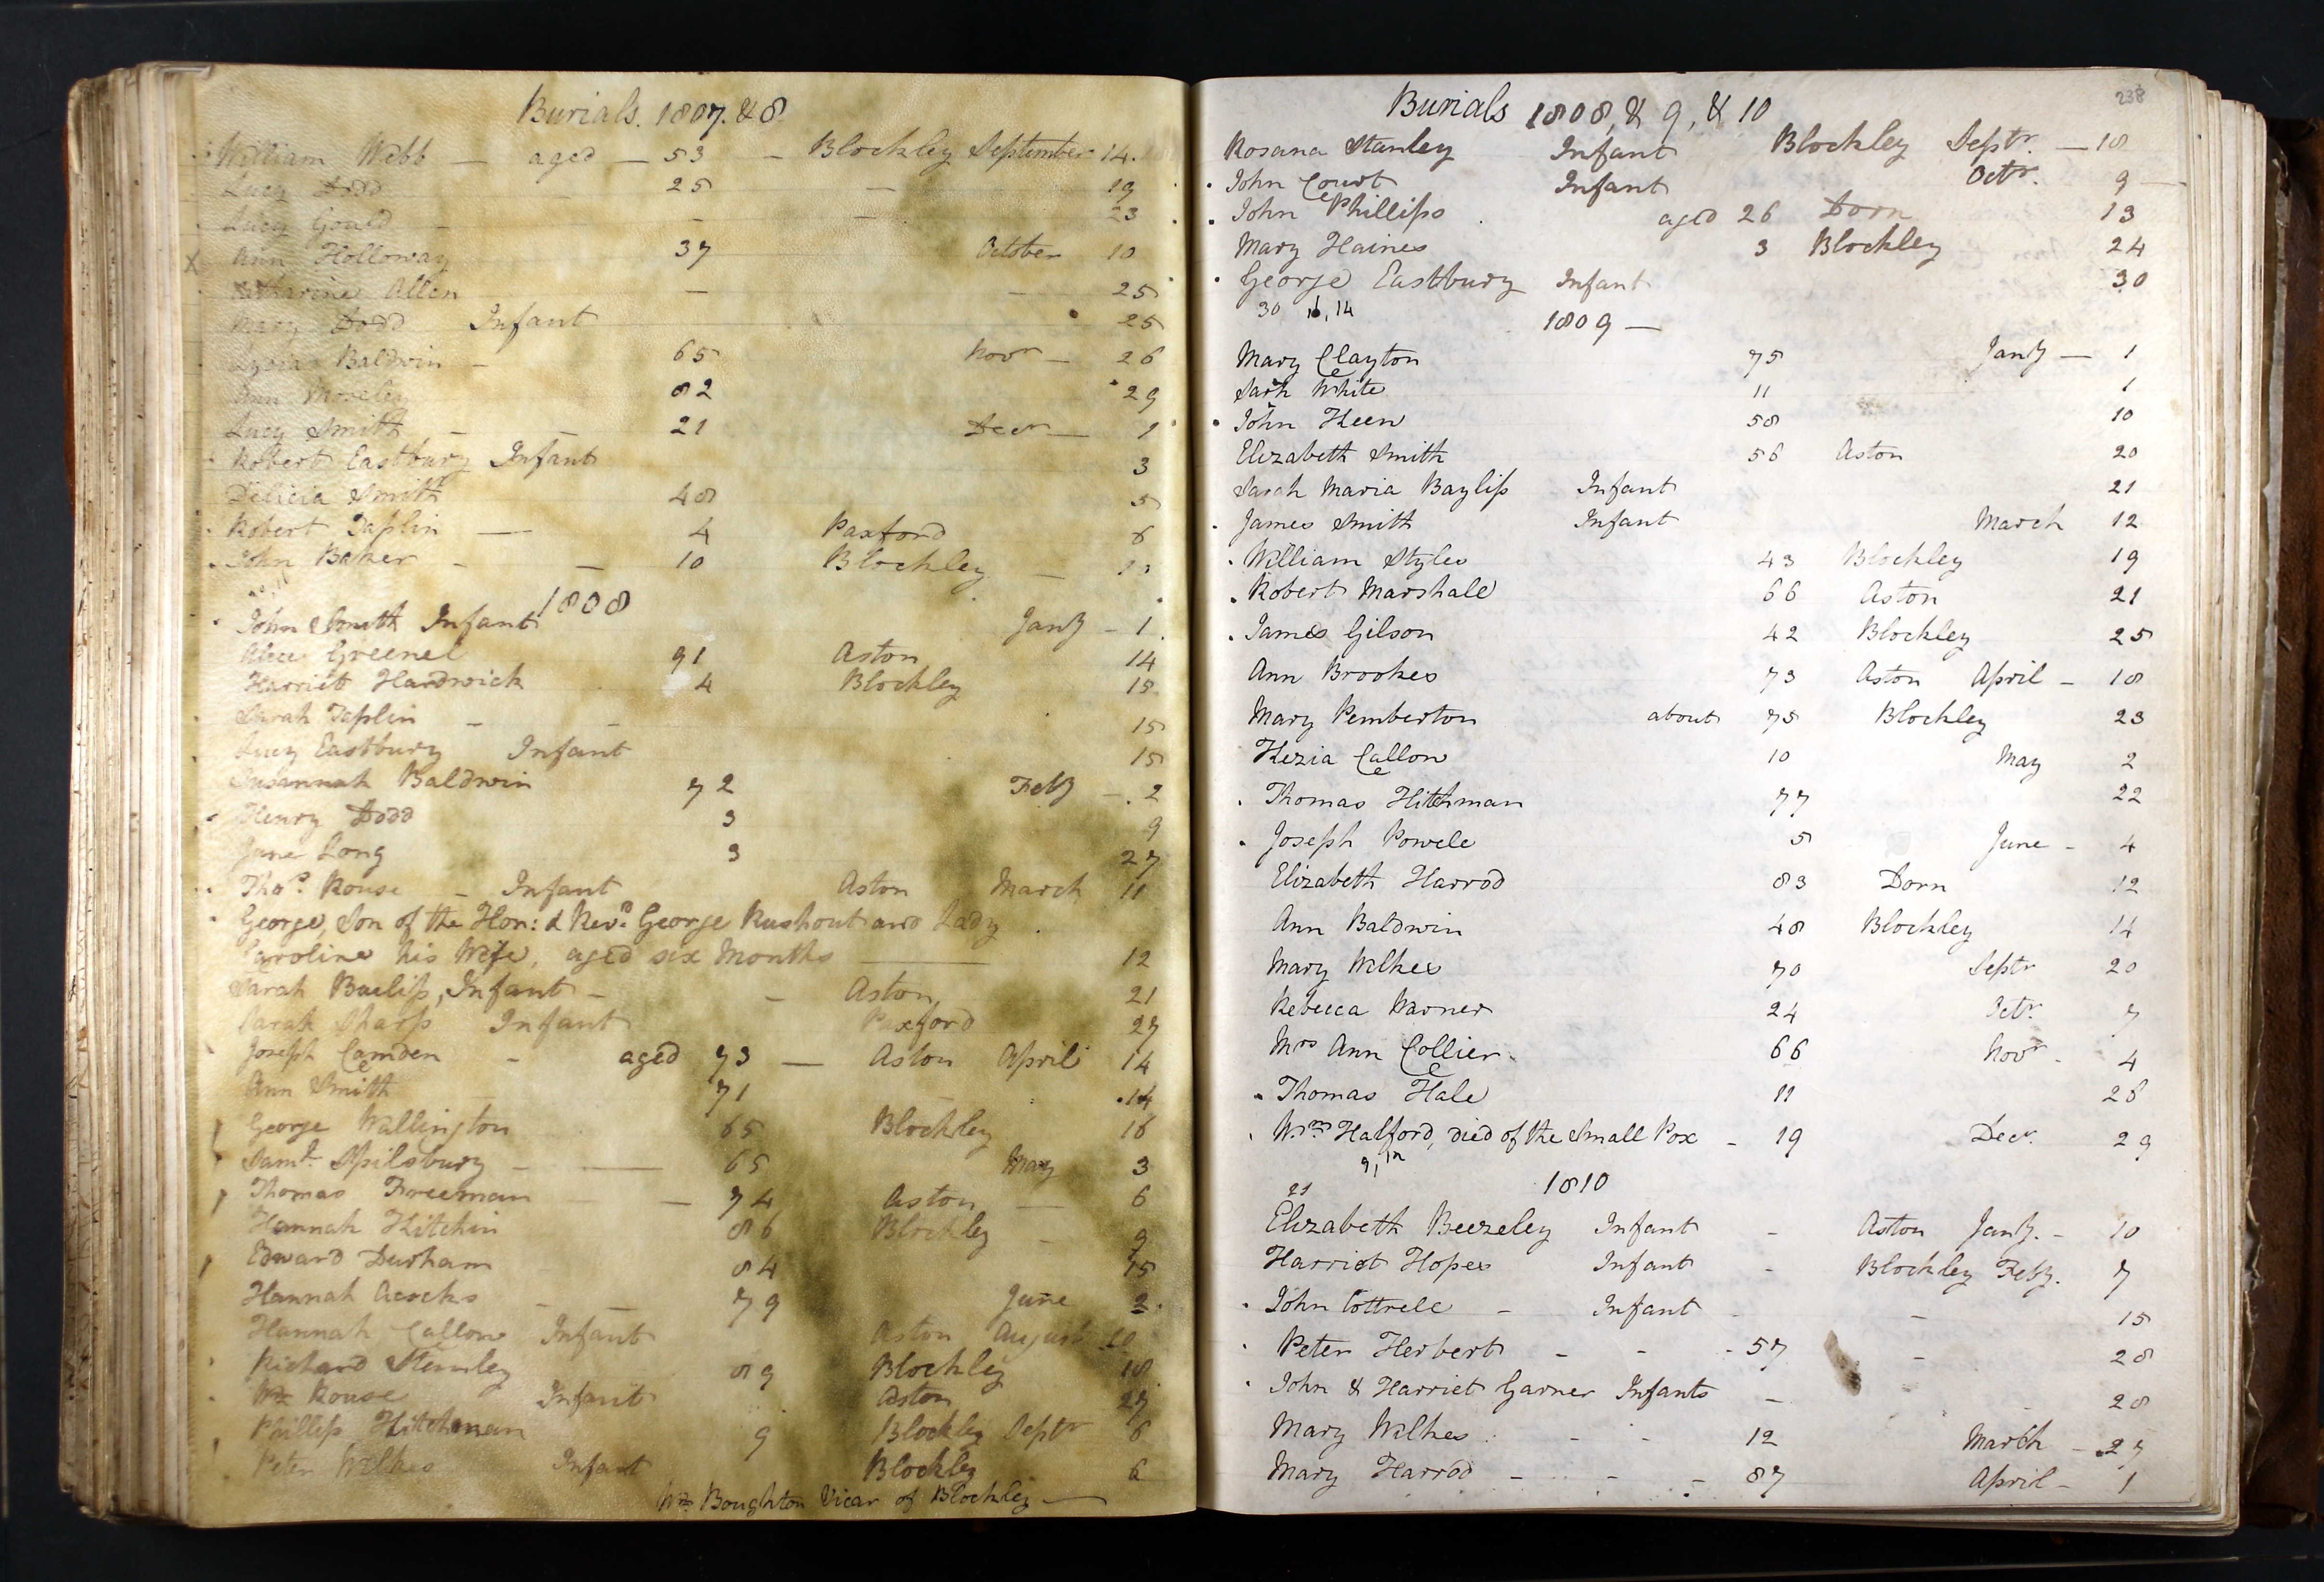 Burials. 1807. & 8
William Webb — aged — 53 — Blockley September 14.
Lucy Dodd 25 — 19
Lucy Gould — — — 23
x Ann Holloway 37 October 10
Katharine Allen — — 25
Mary Dodd Infant 25
Lydia Baldwin — 65 Novr — 26
Ann Moseley 82 29
Lucy Smith — — 21 Decr — 1
Robert Eastbury Infant 3
Delicia Smith 48 5
Robert Taplin — 4 Paxford 6
John Baker — — 10 Blockley —
1808
John Smith Infant Jany — 1
Alice Greenel 91 Aston 14
Harriet Hardwick 4 Blockley 15
Sarah Taplin — — 15
Lucy Eastbury Infant 15
Susannah Baldwin 72 Feby — 2
Henry Dodd 3 9
Jane Long 3 27
Thos. Rouse — Infant Aston March 11
George, Son of the Hon: & Revd. George Rushout and Lady
Caroline his Wife, aged six Months — 12
Sarah Bayliss, Infant — — Aston, 21
Sarah Sharp Infant Paxford 27
Joseph Camden — aged 73 — Aston April 14
Ann Smith 71 — — 14
George Wallington 65 Blockley 16
Saml. Spilsbury — — 65 May 3
Thomas Freeman — — 74 Aston — 6
Hannah Hitchin 86 Blockley — 9
Edward Durham 84 15
Hannah Acocks — — 79 June 2.
Hannah Callow Infant Aston August 10
Richard Stanley 89 Blockley 18
Wm Rouse Infant Aston 27
Phillip Hitchman 9 Blockley Septr 6
Peter Wilkes Infant Blockley 6
Wm. Boughton Vicar of Blockley —
238
Burials 1808, & 9, & 10
Rosana Stanley Infant Blockley Septr. — 18
John Court Infant Octr. 9 —
John Phillips aged 26 Dorn 13
Mary Haines 3 Blockley 24
George Eastbury Infant 30
30 16, 14
1809 —
Mary Clayton 75 Jany — 1
Sarh White 11 1
John Keen 58 10
Elizabeth Smith 56 Aston 20
Sarah Maria Bayliss Infant 21
James Smith Infant March 12
William Styles 43 Blockley 19
Robert Marshall 66 Aston 21
James Gilson 42 Blockley 25
Ann Brookes 73 Aston April — 18
Mary Pemberton about 75 Blockley 23
Kezia Callow 10 May 2
Thomas Hitchman 77 22
Joseph Powell 5 June — 4
Elizabeth Harrod 83 Dorn 12
Ann Baldwin 48 Blockley 14
Mary Wilkes 70 Septr 20
Rebecca Warner 24 Octr. 7
Mrs Ann Collier 66 Novr — 4
Thomas Hale 11 26
Wm Halford, died of the Small Pox — 19 Decr. 29
9, 12
21 1810
Elizabeth Beezeley Infant — Aston Jany. — 10
Harriot Hopes Infant — Blockley Feby. 7
John Cottrell — Infant — — 15
Peter Herbert — — - 57 — 28
John & Harriet Garner Infants — 28
Mary Wilkes — — 12 March — 27
Mary Harrod — — — 87 April — 1